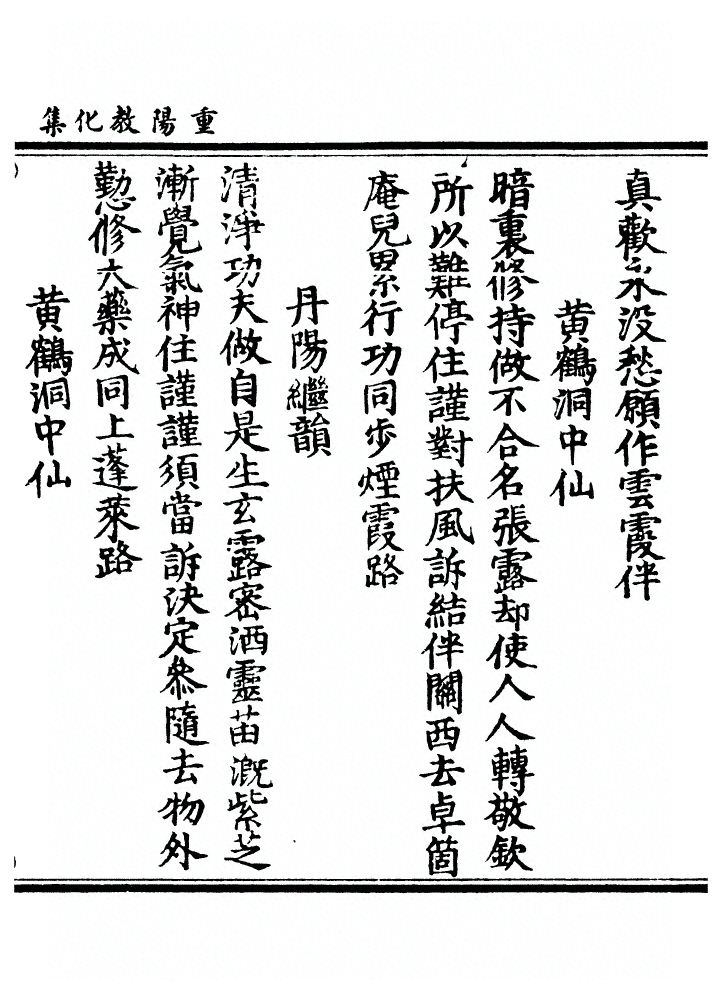 重陽教化集
真歡永没愁願作雲霞伴
黄鶴洞中仙
暗裏修持做不合名張露却使人人轉敬欽
所以難停住謹對扶風訴結伴關西去卓箇
庵兒累行功同步煙霞路
丹陽繼韻
清淨功夫做自是生玄露密洒靈苗溉紫芝
漸覺氣神住謹謹須當訴決定叅隨去物外
懃修大藥成同上蓬萊路
黄鶴洞中仙